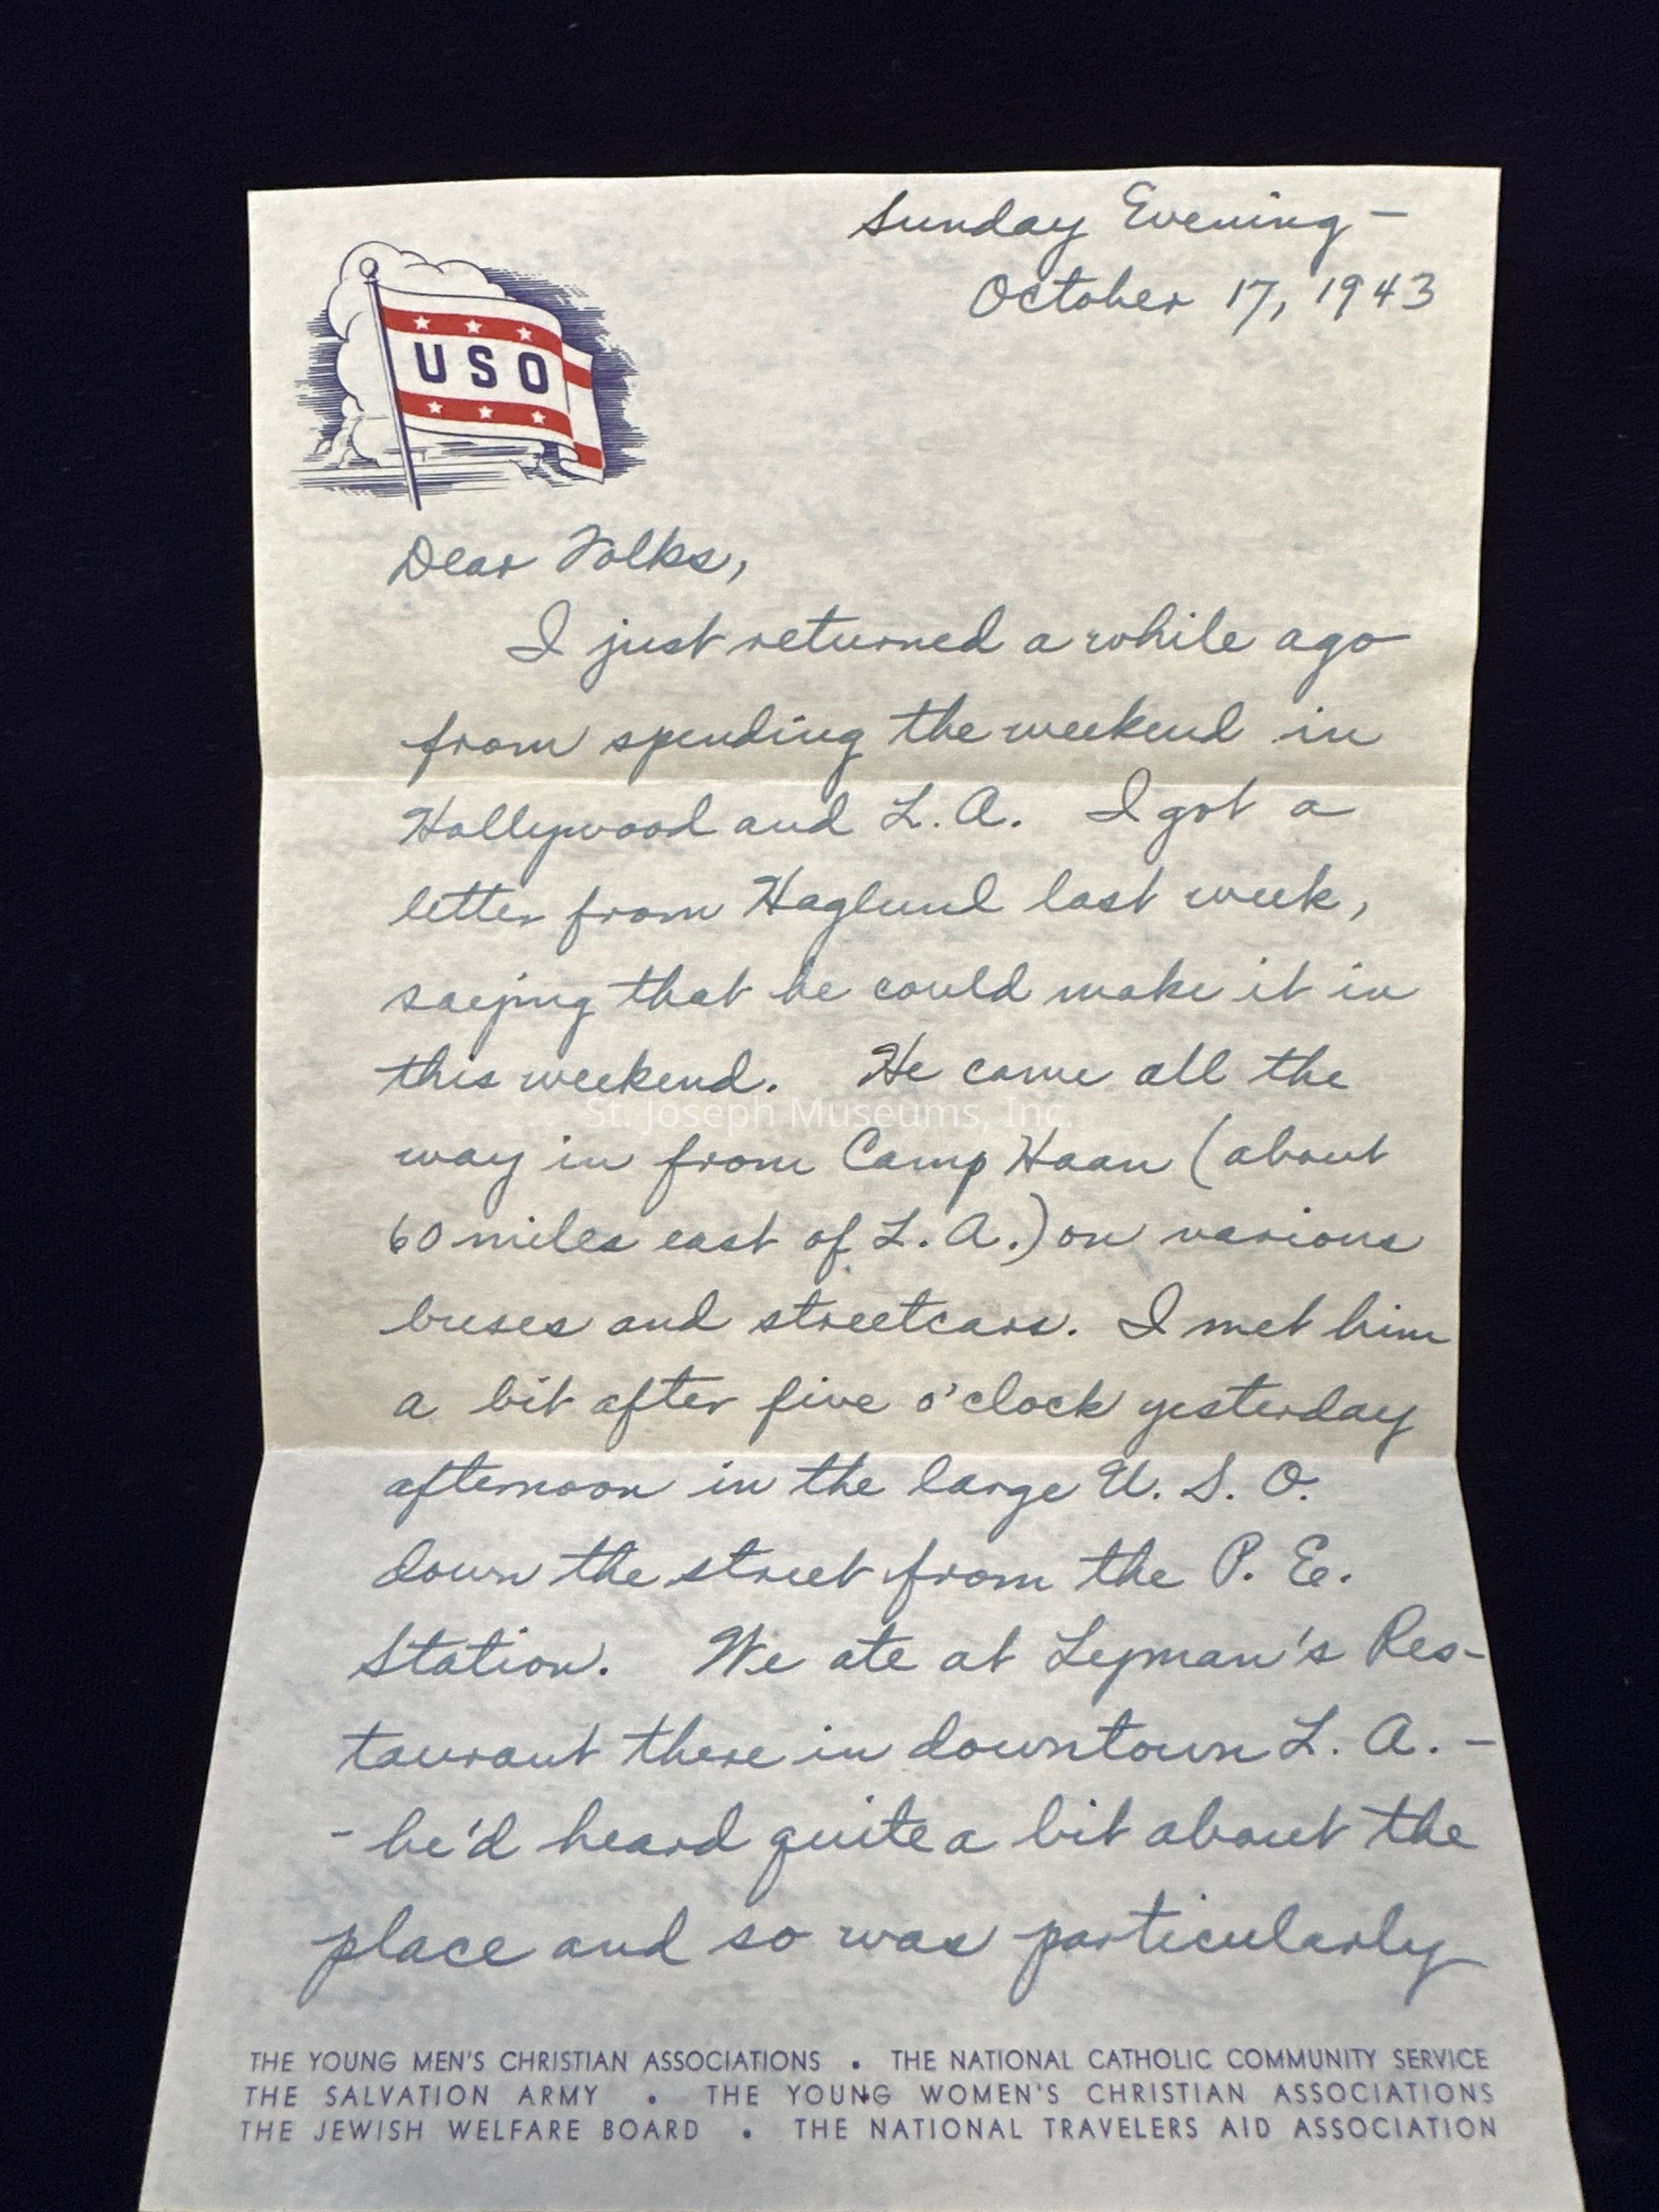 Sunday Evening —
October 17, 1943
USO
Dear Folks,
I just returned a while ago
from spending the weekend in
Hollywood and L.A. I got a
letter from Haglund last week,
saying that he could make it in
this weekend. He came all the
St. Joseph Museums, Inc.
way in from Camp Haan (about
60 miles east of L.A.) on various
buses and streetcars. I met him
a bit after five o'clock yesterday
afternoon in the large U.S.O.
down the street from the P. E.
Station. We ate at Lyman's Res-
taurant there in downtown L.A. -
- he'd heard quite a bit about the
place and so was particularly
THE YOUNG MEN'S CHRISTIAN ASSOCIATIONS • THE NATIONAL CATHOLIC COMMUNITY SERVICE
THE SALVATION ARMY • THE YOUNG WOMEN'S CHRISTIAN ASSOCIATIONS
THE JEWISH WELFARE BOARD • THE NATIONAL TRAVELERS AID ASSOCIATION